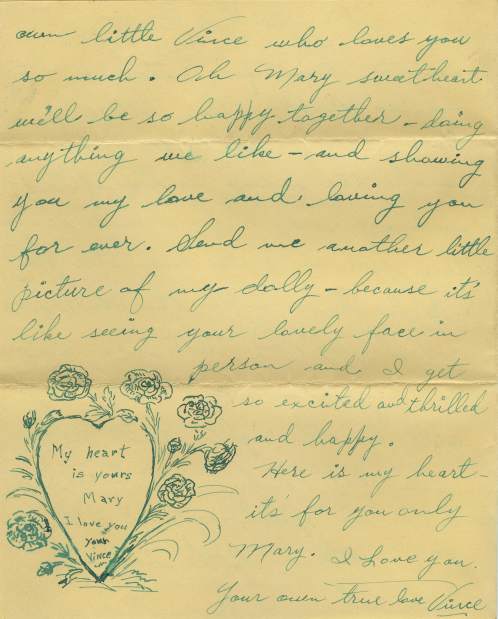 own little Vince who loves you
so much. Oh Mary sweetheart
we'll be so happy together - doing
anything we like - and showing
you my love and loving you
for ever. Send me another little
picture of my dolly - because it's
like seeing your lovely face in
person and I get
so excited and thrilled
and happy.
Here is my heart -
it's for you only
Mary. I Love you.
Your own true love Vince
My heart
is yours
Mary
I love you
your
Vince